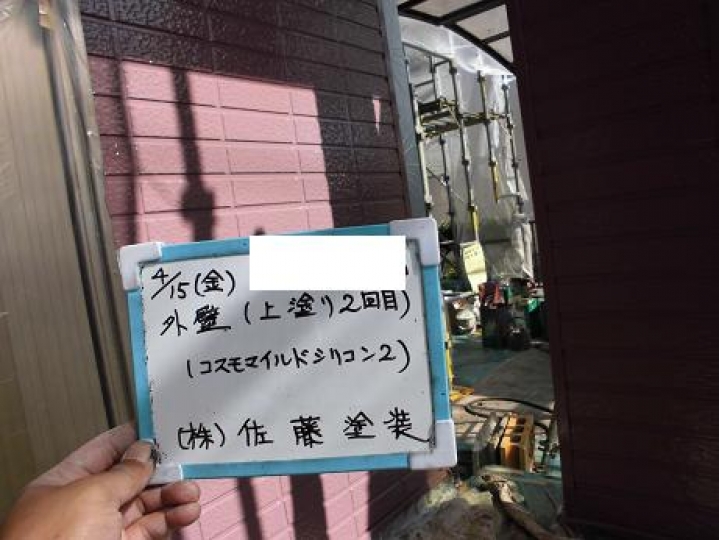 4/15(金)
外壁(上塗り2回目)
(コスモマイルドシリコン2)
(株)佐藤塗装